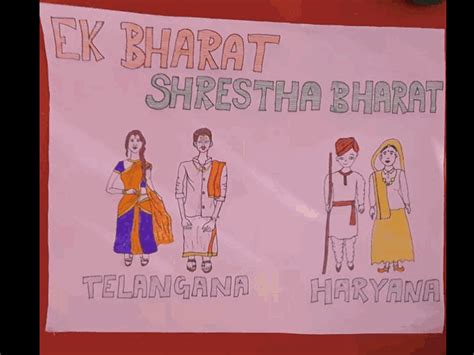 EK BHARAT
SHRESTHA BHARAT
TELANGANA
HARYANA